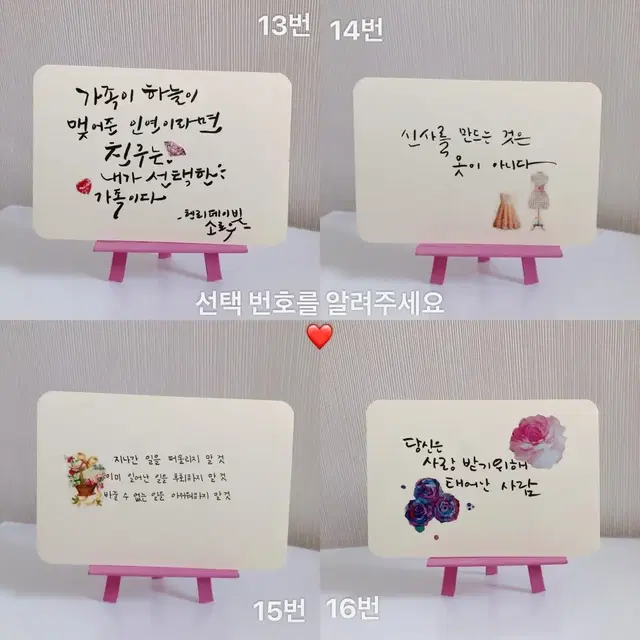 13번
가족이 하늘이
맺어준 인연이라면
친구는
내가 선택한
가족이다
-헨리데이빗
소로우-
14번
신사를 만드는 것은
옷이 아니다
선택 번호를 알려주세요
지나간 일을 떠올리지 말 것
이미 일어난 일을 후회하지 말 것
바꿀 수 없는 일을 아쉬워하지 말 것
15번
당신은
사랑 받기위해
태어난 사람
16번